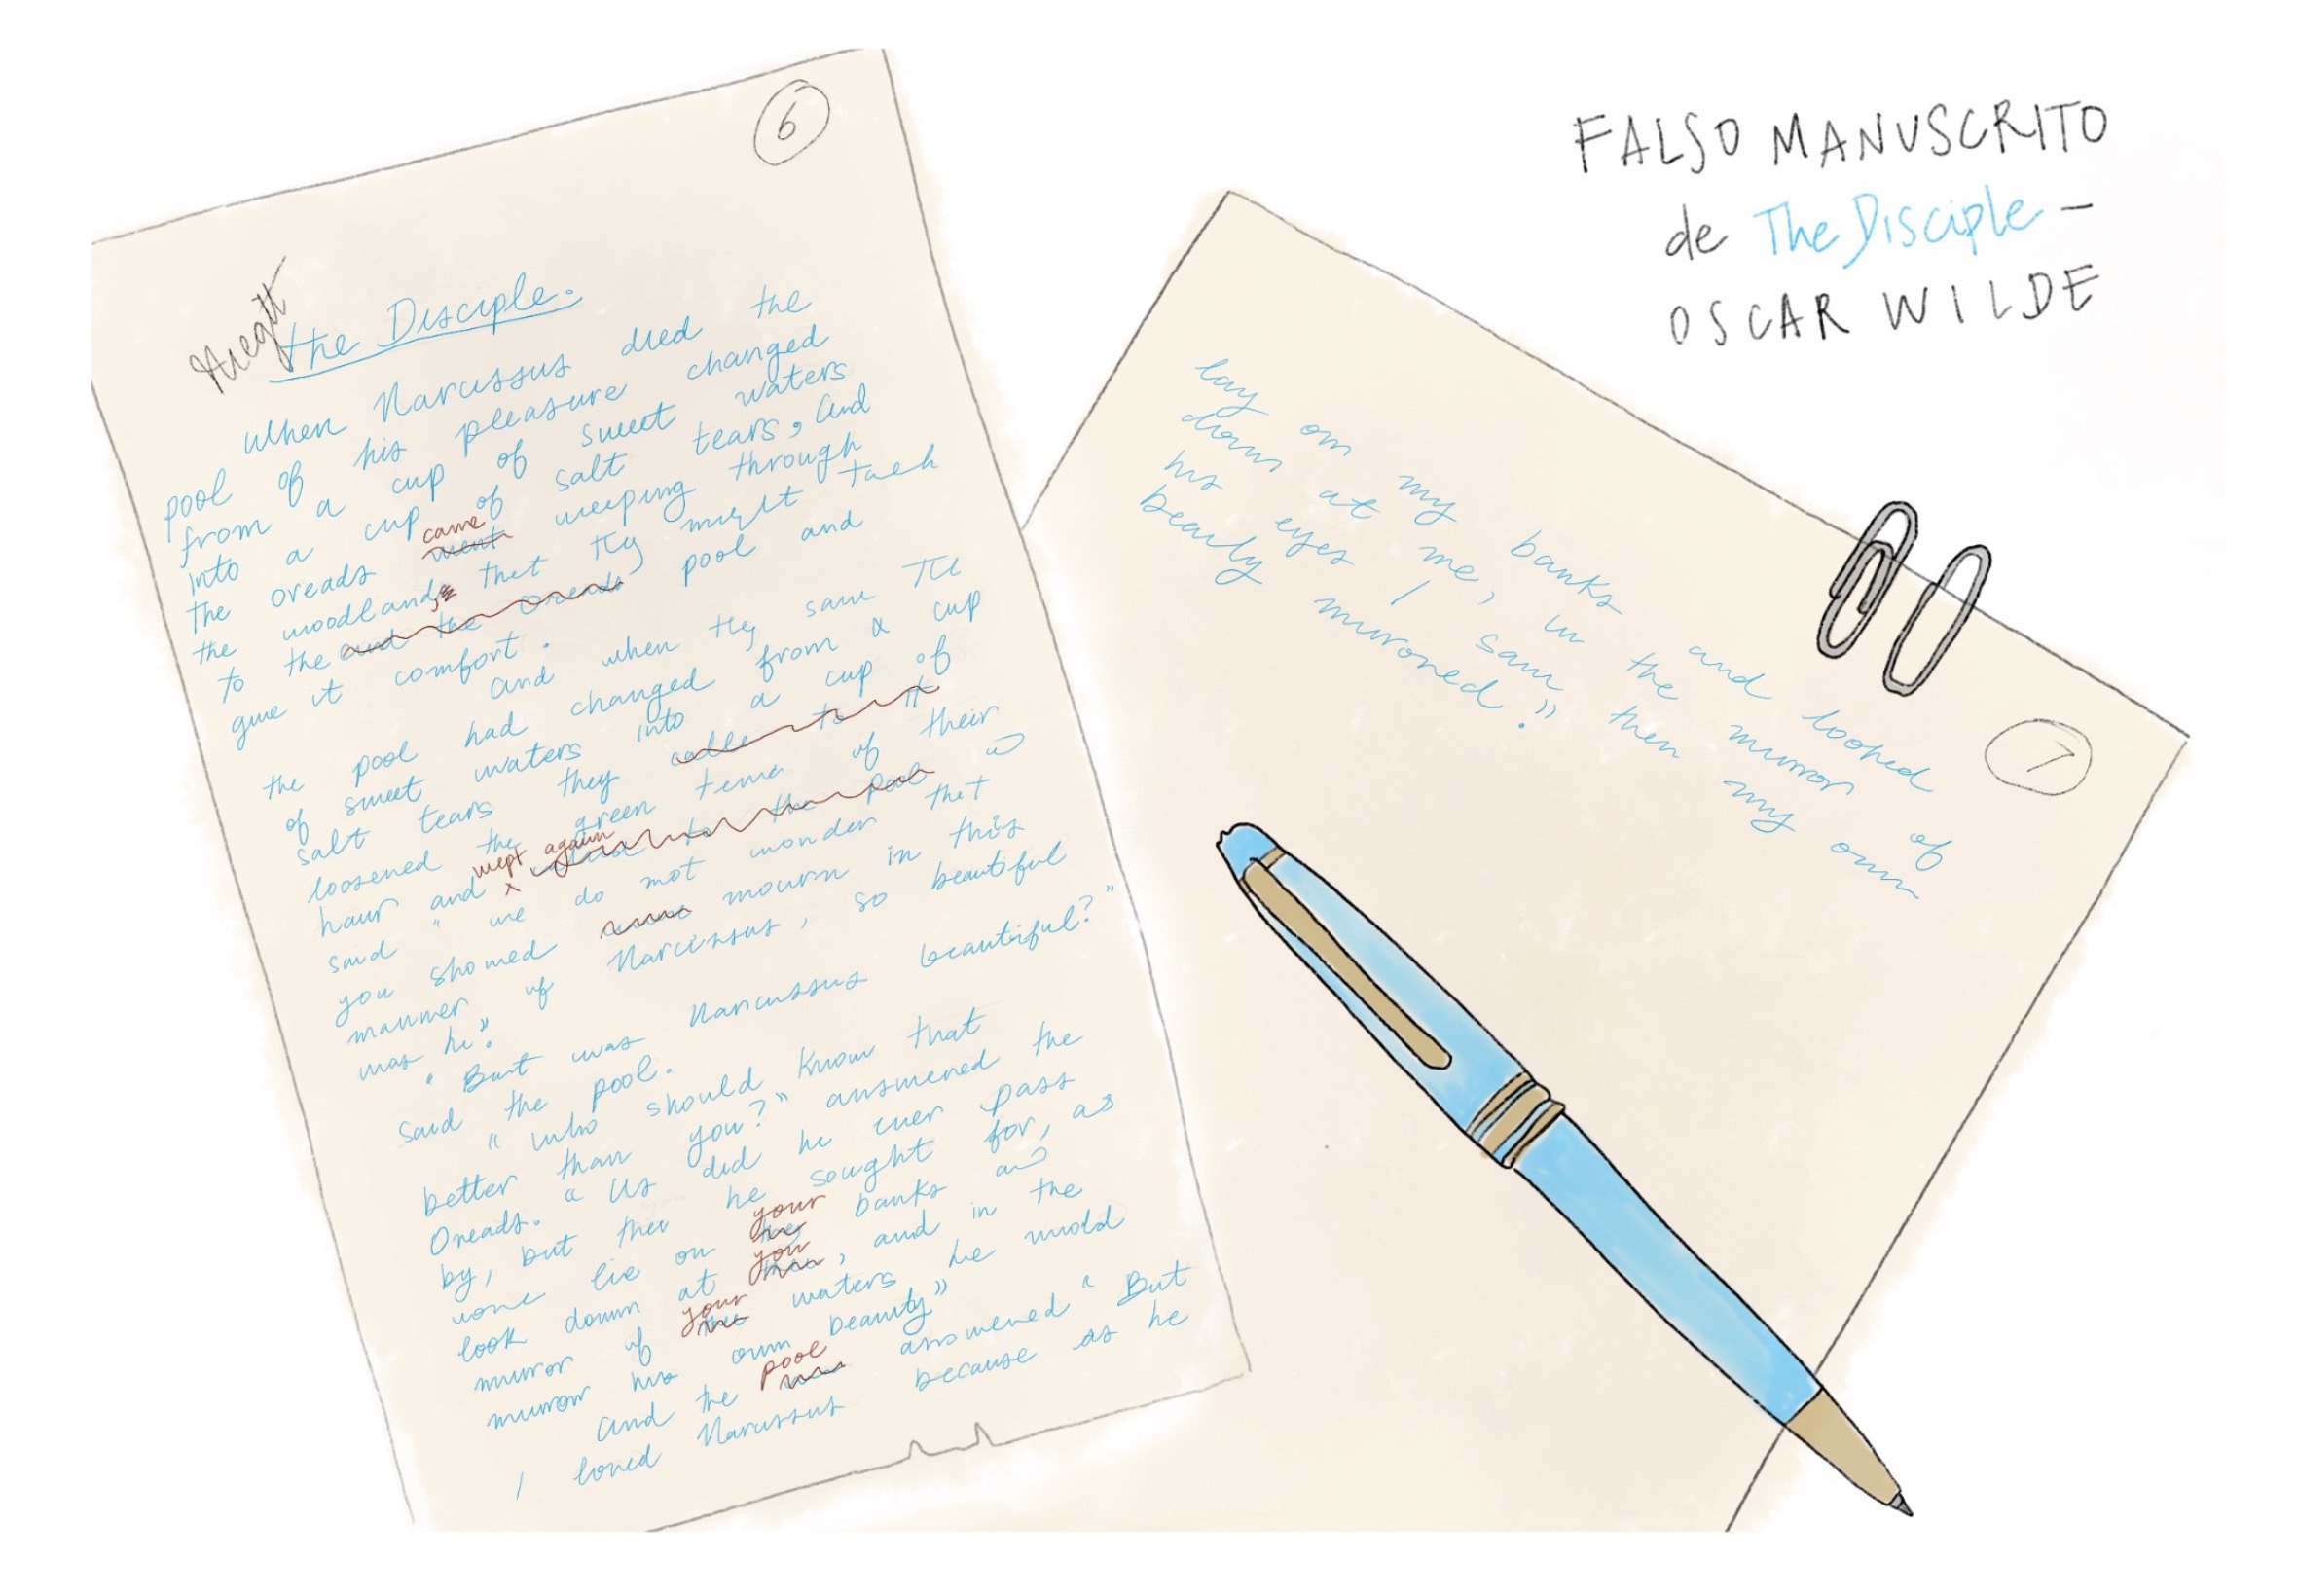 6
The Disciple.
When Narcissus died the
pool of his pleasure changed
from a cup of sweet waters
into a cup of salt tears, and
came
the oreads went weeping through
the woodlands that they might tach
to the and the oreads pool and
give it comfort.
and when they saw the
the pool had changed from a cup
of sweet waters into a cup of
salt tears they called to it
loosened the green of their
wept again
hair and to the pool and
said "we do not wonder that
you showed mourn in this
manner of Narcissus, so beautiful
was he."
"But was Narcissus beautiful?"
said the pool.
"Who should know that
better than you?" answered the
Oreads. "Us did he ever pass
by, but thee he sought for, as
your
wone lie on banks and
you
look down at , and in the
your
mirror of waters he wold
mirror his own beauty"
pool
and the answered "But
I loved Narcissus because as he
FALSO MANUSCRITO
de The Disciple –
OSCAR WILDE
7
lay on my banks and looked
down at me, in the mirror of
his eyes I saw then my own
beauty mirrored."